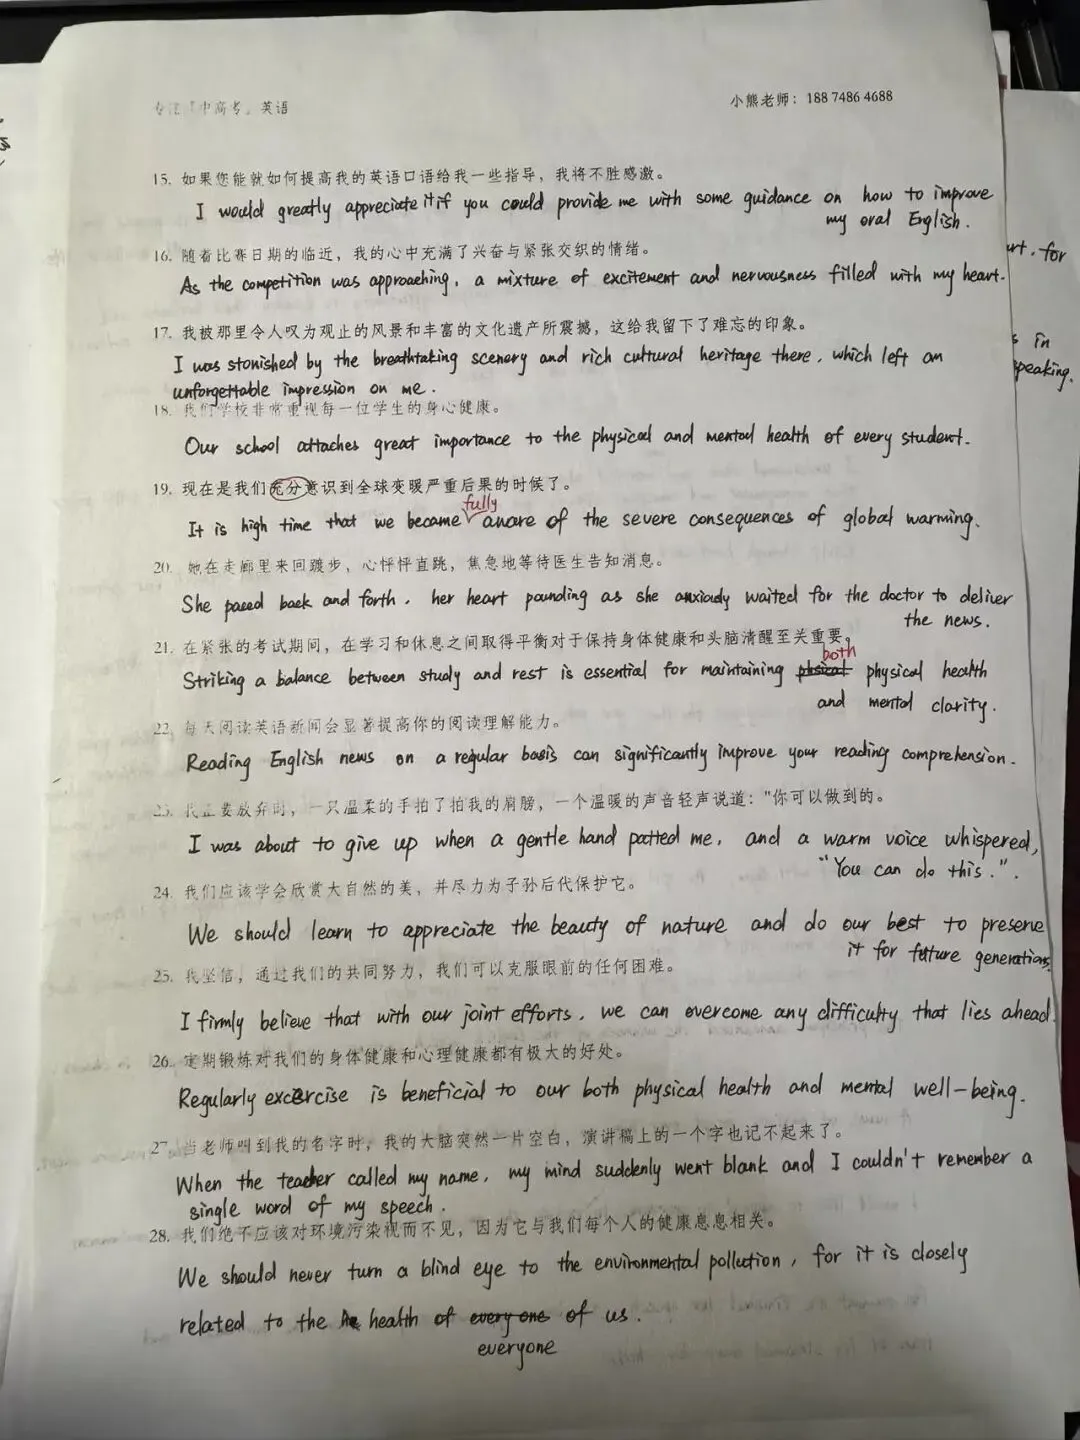 专注『中高考』英语
小熊老师：188 7486 4688
15. 如果您能就如何提高我的英语口语给我一些指导，我将不胜感激。
I would greatly appreciate it if you could provide me with some guidance on how to improve
my oral English.
16. 随着比赛日期的临近，我的心中充满了兴奋与紧张交织的情绪。
As the competition was approaching, a mixture of excitement and nervousness filled with my heart.
17. 我被那里令人叹为观止的风景和丰富的文化遗产所震撼，这给我留下了难忘的印象。
I was stonished by the breathtaking scenery and rich cultural heritage there, which left an
unforgettable impression on me.
18. 我们学校非常重视每一位学生的身心健康。
Our school attaches great importance to the physical and mental health of every student.
19. 现在是我们充分意识到全球变暖严重后果的时候了。
fully
It is high time that we became aware of the severe consequences of global warming.
20. 她在走廊里来回踱步，心怦怦直跳，焦急地等待医生告知消息。
She paced back and forth, her heart pounding as she anxiously waited for the doctor to deliver
the news.
21. 在紧张的考试期间，在学习和休息之间取得平衡对于保持身体健康和头脑清醒至关重要。
both
Striking a balance between study and rest is essential for maintaining physical health
and mental clarity.
22. 每天阅读英语新闻会显著提高你的阅读理解能力。
Reading English news on a regular basis can significantly improve your reading comprehension.
23. 我正要放弃时，一只温柔的手拍了拍我的肩膀，一个温暖的声音轻声说道："你可以做到的。
I was about to give up when a gentle hand patted me, and a warm voice whispered,
"You can do this.".
24. 我们应该学会欣赏大自然的美，并尽力为子孙后代保护它。
We should learn to appreciate the beauty of nature and do our best to preserve
it for future generations.
25. 我坚信，通过我们的共同努力，我们可以克服眼前的任何困难。
I firmly believe that with our joint efforts, we can overcome any difficulty that lies ahead.
26. 定期锻炼对我们的身体健康和心理健康都有极大的好处。
Regularly excercise is beneficial to our both physical health and mental well-being.
27. 当老师叫到我的名字时，我的大脑突然一片空白，演讲稿上的一个字也记不起来了。
When the teacher called my name, my mind suddenly went blank and I couldn't remember a
single word of my speech.
28. 我们绝不应该对环境污染视而不见，因为它与我们每个人的健康息息相关。
We should never turn a blind eye to the environmental pollution, for it is closely
related to the health of every one of us.
everyone
for
in
speaking.